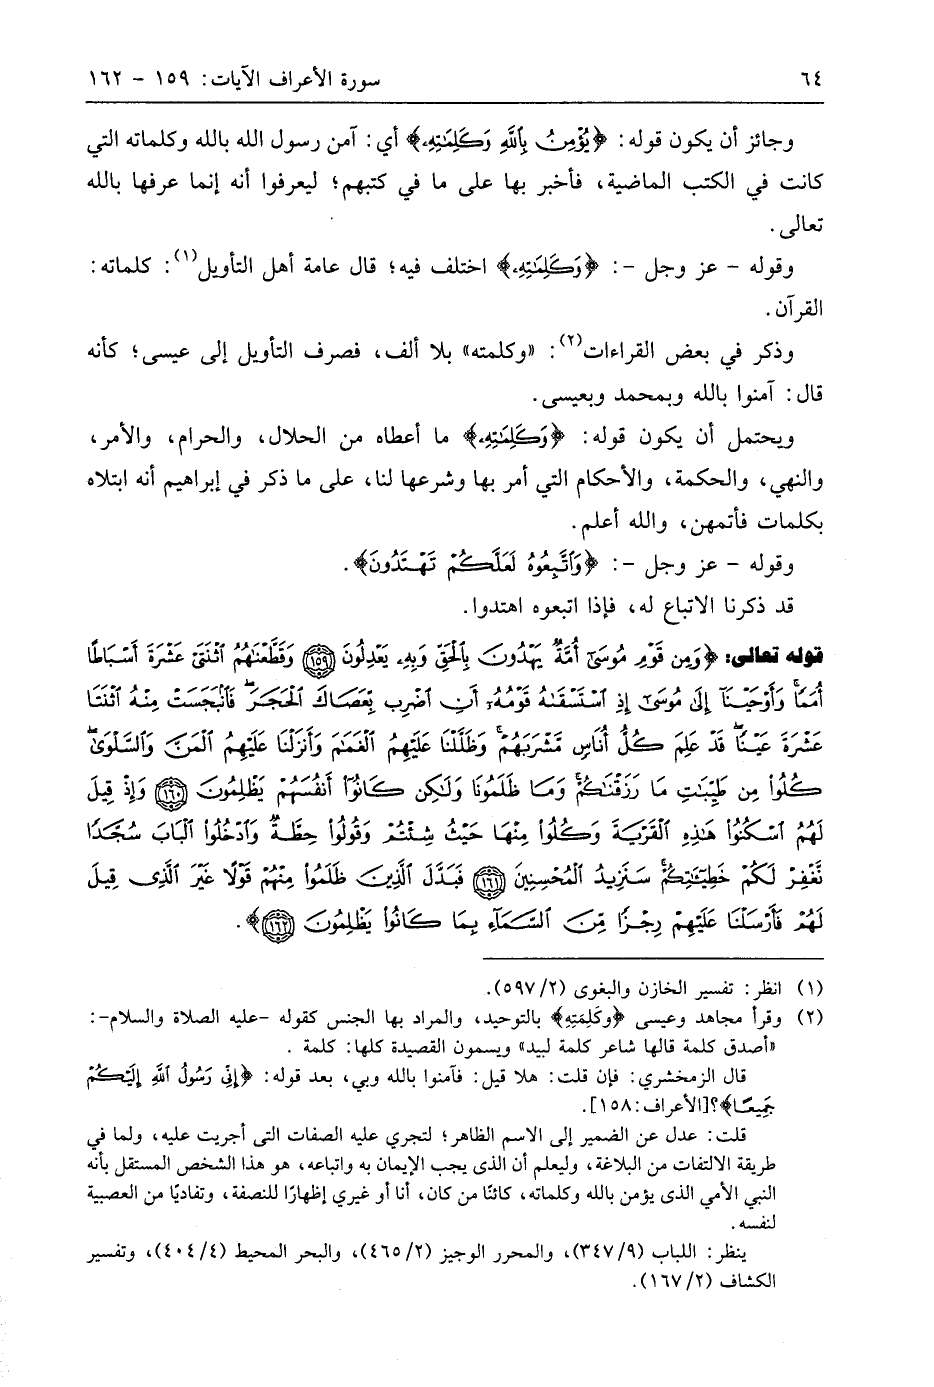 ٦٤ سورة الأعراف الآيات: ١٥٩ - ١٦٢
وجائز أن يكون قوله: ﴿يُؤْمِنُ بِٱللَّهِ وَكَلِمَٰتِهِۦ﴾ أي: آمن رسول الله بالله وكلماته التي
كانت في الكتب الماضية، فأخبر بها على ما في كتبهم؛ ليعرفوا أنه إنما عرفها بالله
تعالى.
وقوله - عز وجل -: ﴿وَكَلِمَٰتِهِۦ﴾ اختلف فيه؛ قال عامة أهل التأويل(١): كلماته:
القرآن.
وذكر في بعض القراءات(٢): «وكلمته» بلا ألف، فصرف التأويل إلى عيسى؛ كأنه
قال: آمنوا بالله وبمحمد وبعيسى.
ويحتمل أن يكون قوله: ﴿وَكَلِمَٰتِهِۦ﴾ ما أعطاه من الحلال، والحرام، والأمر،
والنهي، والحكمة، والأحكام التي أمر بها وشرعها لنا، على ما ذكر في إبراهيم أنه ابتلاه
بكلمات فأتمهن، والله أعلم.
وقوله - عز وجل -: ﴿وَٱتَّبِعُوهُ لَعَلَّكُمْ تَهْتَدُونَ﴾.
قد ذكرنا الاتباع له، فإذا اتبعوه اهتدوا.
قوله تعالى: ﴿وَمِن قَوْمِ مُوسَىٰٓ أُمَّةٌ يَهْدُونَ بِٱلْحَقِّ وَبِهِۦ يَعْدِلُونَ ١٥٩ وَقَطَّعْنَٰهُمُ ٱثْنَتَىْ عَشْرَةَ أَسْبَاطًا
أُمَمًا ۚ وَأَوْحَيْنَآ إِلَىٰ مُوسَىٰٓ إِذِ ٱسْتَسْقَىٰهُ قَوْمُهُۥٓ أَنِ ٱضْرِب بِّعَصَاكَ ٱلْحَجَرَ ۖ فَٱنۢبَجَسَتْ مِنْهُ ٱثْنَتَا
عَشْرَةَ عَيْنًا ۖ قَدْ عَلِمَ كُلُّ أُنَاسٍ مَّشْرَبَهُمْ ۚ وَظَلَّلْنَا عَلَيْهِمُ ٱلْغَمَٰمَ وَأَنزَلْنَا عَلَيْهِمُ ٱلْمَنَّ وَٱلسَّلْوَىٰ ۖ
كُلُوا۟ مِن طَيِّبَٰتِ مَا رَزَقْنَٰكُمْ ۚ وَمَا ظَلَمُونَا وَلَٰكِن كَانُوٓا۟ أَنفُسَهُمْ يَظْلِمُونَ ١٦٠ وَإِذْ قِيلَ
لَهُمُ ٱسْكُنُوا۟ هَٰذِهِ ٱلْقَرْيَةَ وَكُلُوا۟ مِنْهَا حَيْثُ شِئْتُمْ وَقُولُوا۟ حِطَّةٌ وَٱدْخُلُوا۟ ٱلْبَابَ سُجَّدًا
نَّغْفِرْ لَكُمْ خَطِيٓـَٰٔتِكُمْ ۚ سَنَزِيدُ ٱلْمُحْسِنِينَ ١٦١ فَبَدَّلَ ٱلَّذِينَ ظَلَمُوا۟ مِنْهُمْ قَوْلًا غَيْرَ ٱلَّذِى قِيلَ
لَهُمْ فَأَرْسَلْنَا عَلَيْهِمْ رِجْزًا مِّنَ ٱلسَّمَآءِ بِمَا كَانُوا۟ يَظْلِمُونَ ١٦٢﴾.
(١) انظر: تفسير الخازن والبغوى (٥٩٧/٢).
(٢) وقرأ مجاهد وعيسى ﴿وكَلِمَتِهِ﴾ بالتوحيد، والمراد بها الجنس كقوله -عليه الصلاة والسلام-:
«أصدق كلمة قالها شاعر كلمة لبيد» ويسمون القصيدة كلها: كلمة .
قال الزمخشري: فإن قلت: هلا قيل: فآمنوا بالله وبي، بعد قوله: ﴿إِنِّى رَسُولُ ٱللَّهِ إِلَيْكُمْ
جَمِيعًا﴾؟[الأعراف:١٥٨].
قلت: عدل عن الضمير إلى الاسم الظاهر؛ لتجري عليه الصفات التى أجريت عليه، ولما في
طريقة الالتفات من البلاغة، وليعلم أن الذى يجب الإيمان به واتباعه، هو هذا الشخص المستقل بأنه
النبي الأمي الذى يؤمن بالله وكلماته، كائنًا من كان، أنا أو غيري إظهارًا للنصفة، وتفاديًا من العصبية
لنفسه.
ينظر: اللباب (٣٤٧/٩)، والمحرر الوجيز (٤٦٥/٢)، والبحر المحيط (٤٠٤/٤)، وتفسير
الكشاف (١٦٧/٢).